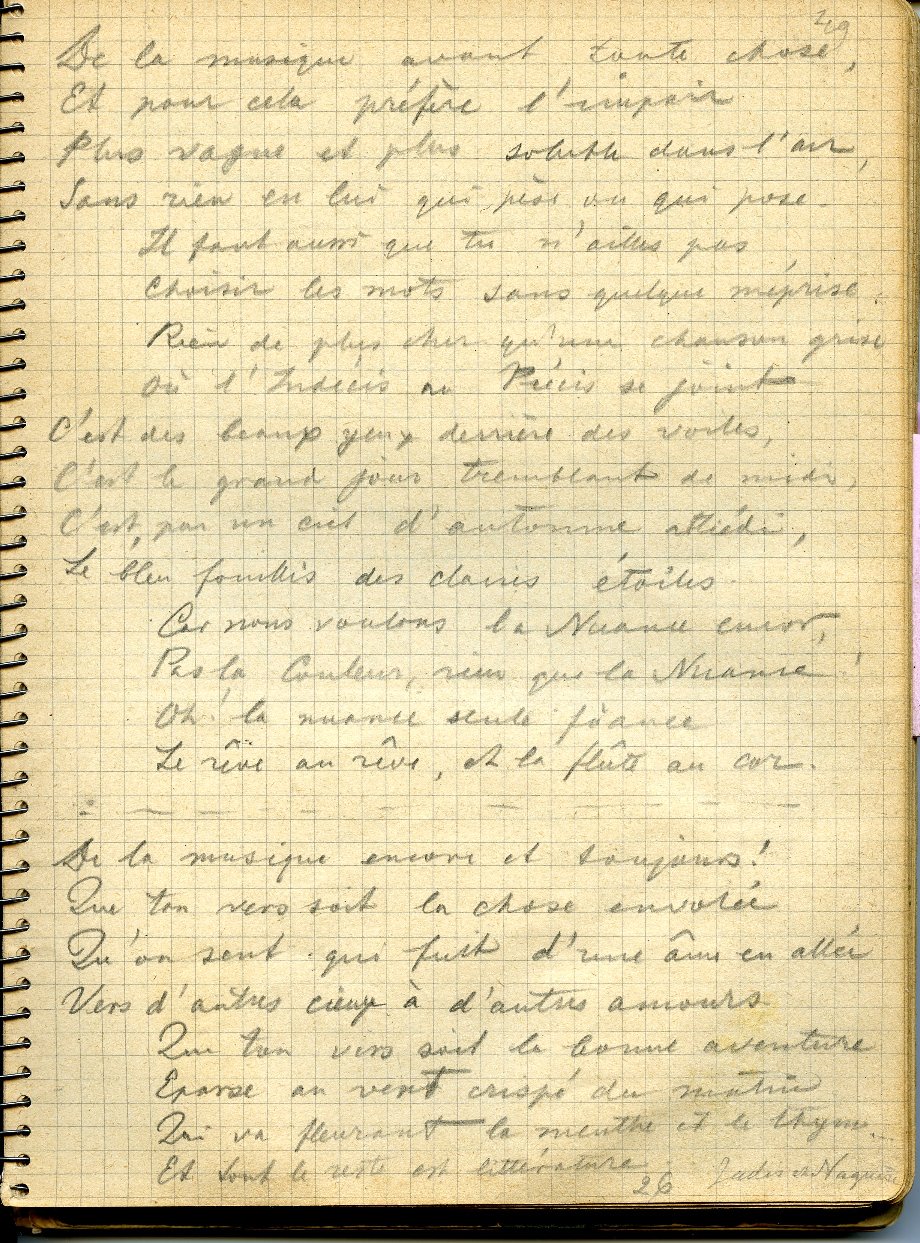 49
De la musique avant toute chose,
Et pour cela préfère l'impair
Plus vague et plus soluble dans l'air,
Sans rien en lui qui pèse ou qui pose.
Il faut aussi que tu n'ailles pas
Choisir les mots sans quelque méprise.
Rien de plus cher qu'une chanson grise
Où l'Indécis au Précis se joint
C'est des beaux yeux derrière des voiles,
C'est le grand jour tremblant de midi,
C'est, par un ciel d'automne attiédi,
Le bleu fouillis des claires étoiles.
Car nous voulons la Nuance encor,
Pas la Couleur, rien que la Nuance !
Oh ! la nuance seule fiance
Le rêve au rêve, et la flûte au cor.
De la musique encore et toujours !
Que ton vers soit la chose envolée
Qu'on sent qui fuit d'une âme en allée
Vers d'autres cieux à d'autres amours
Que ton vers soit la bonne aventure
Eparse au vent crispé du matin
Qui va fleurant la menthe et le thym...
Et tout le reste est littérature.
26 Jadis et Naguère